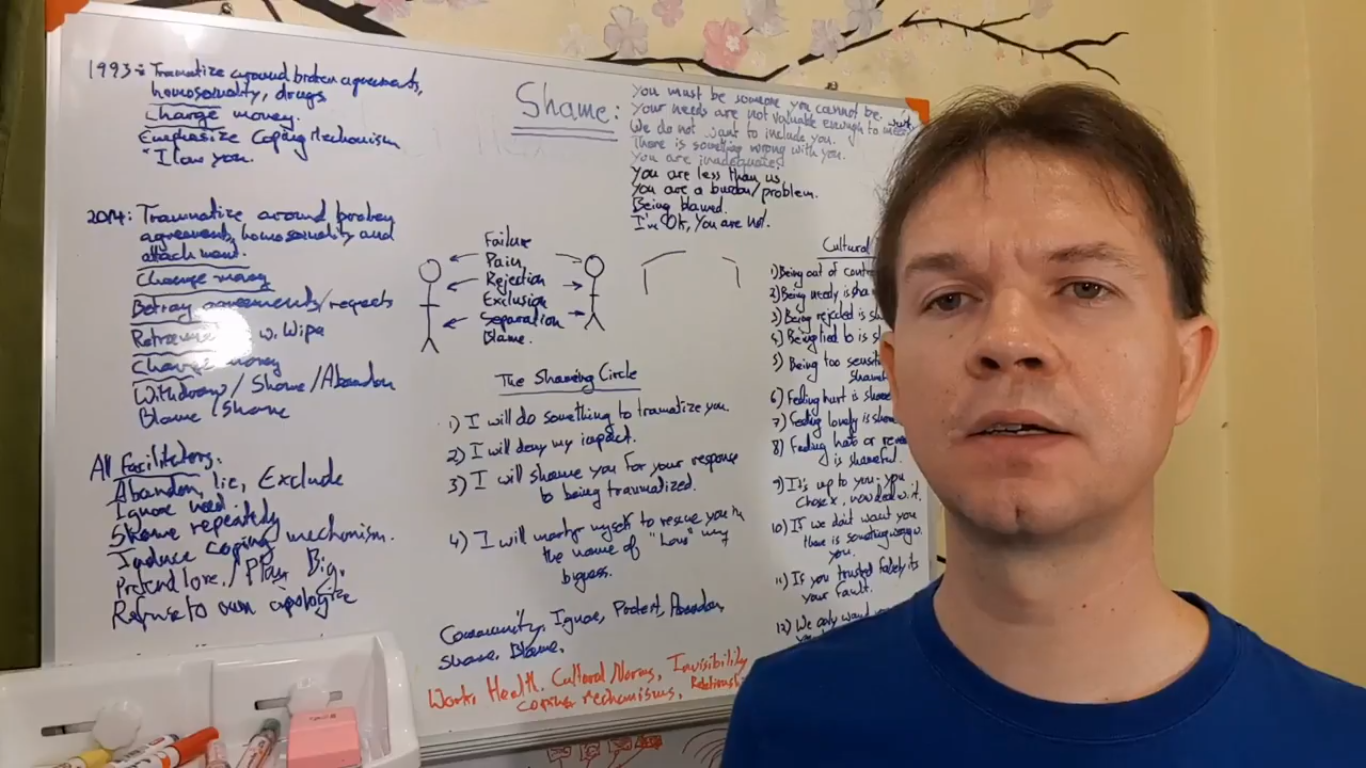 1993: Tramatize around broken agreements,
homosexuality, drugs
Charge money.
Emphasize Coping Mechanism
"I love you.
2014: Traumatize around broken
agreements, homosexuality and
attachment.
Charge money
Betray agreements/requests
w. Wipe
Charge money
Withdraw / Shame / Abandon
Blame / Shame
All Facilitators.
Abandon, lie, Exclude
Ignore need
Shame repeatedly
Induce coping mechanism.
Pretend love. / Play Big.
Refuse to own apologize
Shame:
You must be someone you cannot be.
Your needs are not valuable enough to meet
We do not want to include you.
There is something wrong with you.
You are inadequate!
You are less than us.
You are a burden/problem.
Being blamed.
I'm Ok, You are not.
Failure
Pain
Rejection
Exclusion
Separation
Blame.
The Shaming Circle
1) I will do something to tramatize you.
2) I will deny my impact.
3) I will shame you for your response
to being traumatized.
4) I will martyr myself to rescue you in
the name of "Love" my
bypass.
Community. Ignore, Protect, Abandon,
Shame. Blame.
Work, Health, Cultural Norms, Invisibility
coping mechanisms, Relationshi
Cultural
1) Being out of contr
2) Being needy is sha
3) Being rejected is s
4) Being lied to is s
5) Being too sensiti
shamef
6) Feeling hurt is shame
7) Feeling lonely is sha
8) Feeling hate or
is shameful.
9) It's up to you - you
chose x, now deal w. it.
10) If we don't want you
there is something wrong w.
you.
11) If you trusted falsely its
your fault.
12) We only